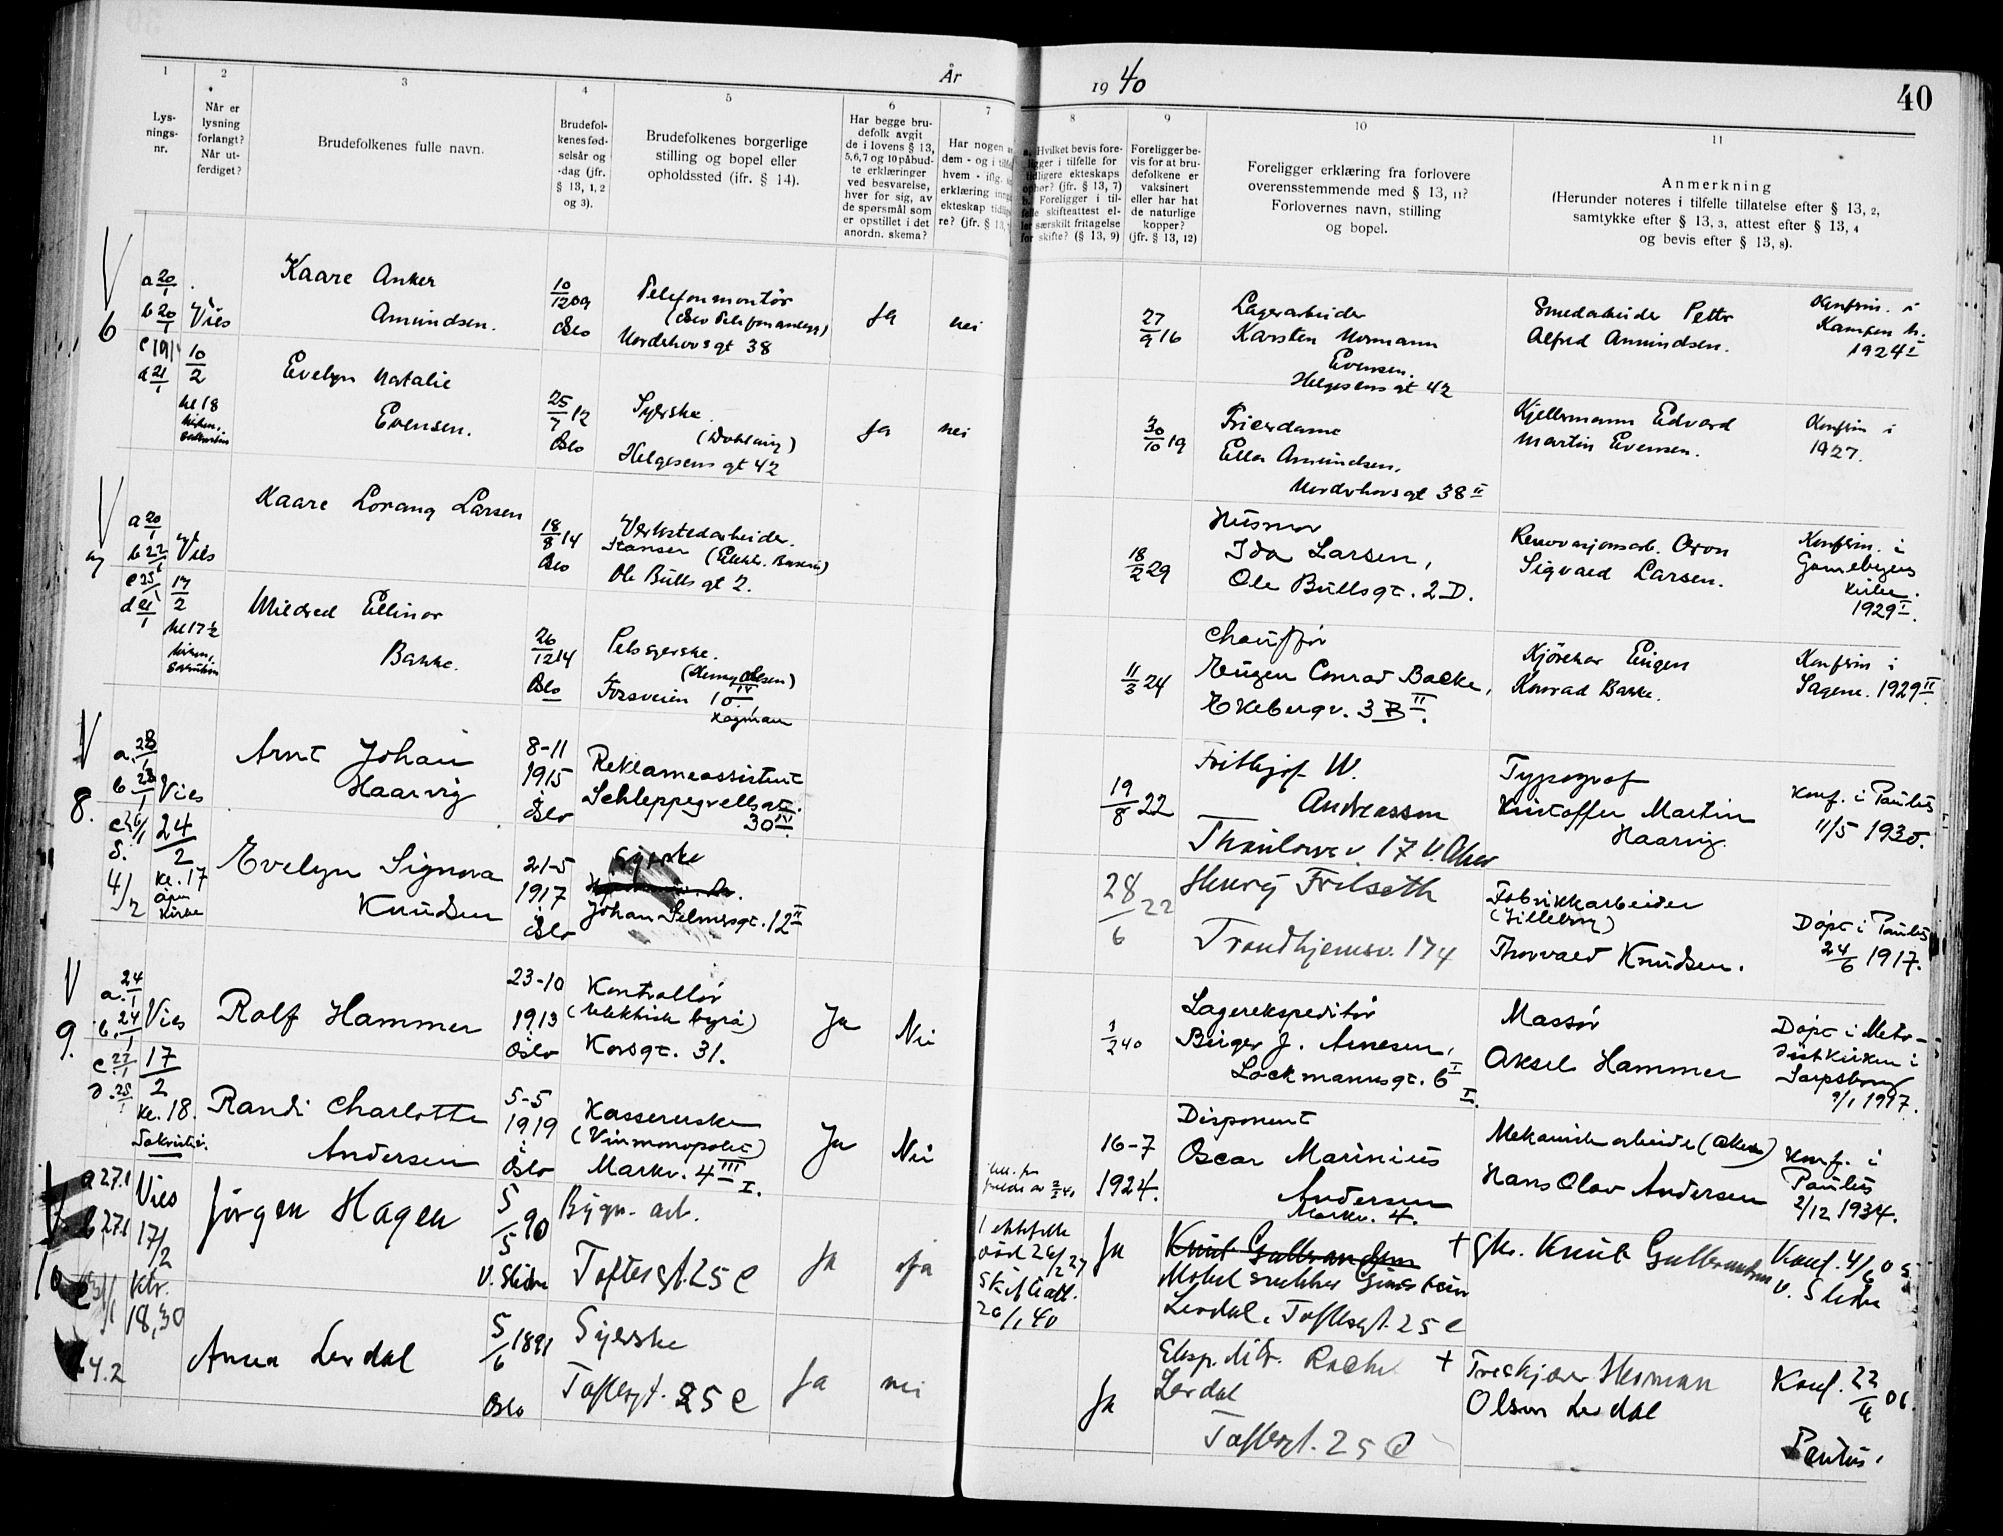 År
19 40
40
1
2
3
4
5
6
7
8
9
10
11
Lys-
nings-
nr.
Når er
lysning
forlangt?
Når ut-
ferdiget?
Brudefolkenes fulle navn.
Brudefol-
kenes fød-
selsår og
-dag (jfr.
§ 13, 1, 2
og 3).
Brudefolkenes borgerlige
stilling og bopel eller
opholdssted (jfr. § 14).
Har begge bru-
defolk avgit
de i lovens § 13,
5,6,7 og 10 påbud-
te erklæringer
ved besvarelse,
hver for sig, av
de spørsmål som
er opstillet i det
anordn. skema?
Har nogen
dem - og i
hvem - iflg.
erklæring
ekteskap
re? (jfr. § 13,
Hvilket bevis fore-
ligger i tilfelle for
tidligere ekteskaps
ophør? (jfr. § 13, 7)
b. Foreligger i til-
felle skifteattest el-
ler særskilt fritagelse
for skifte? (§ 13, 9)
Foreligger be-
vis for at bru-
defolkene er
vaksinert
eller har hat
de naturlige
kopper?
(jfr. § 13, 12)
Foreligger erklæring fra forlovere
overensstemmende med § 13, 11?
Forlovernes navn, stilling
og bopel.
Anmerkning
(Herunder noteres i tilfelle tillatelse efter § 13, 2,
samtykke efter § 13, 3, attest efter § 13, 4
og bevis efter § 13, 8).
6
a 20/1
b 20/1
d 21/1
Vies
10/2
kl 18
Kaare Anker
Amundsen.
10/12 09
Oslo
Telefonmontör
(Oslo Telefonanlegg)
Nordahovsgt 38
Ja
nei
27/9 16
Lagerarbeider
Karsten Normann
Evensen.
Helgesens gt 42
Smedarbeider Petter
Alfred Amundsen.
Konfirm. i
Kampen k.
1924 I
Evelyn Natalie
Evensen.
25/7 12
Oslo
Syerske
Helgesens gt 42
Ja
nei
30/10 19
Frisørdame
Ella Amundsen,
Nordahovsgt 38 II
Kjellermann Edvard
Martin Evensen.
Konfirm i
1927.
7
a 20/1
b 22/1
c 25/1
d 21/1
Vies
17/2
kl 17 ½
Kaare Lorang Larsen
18/8 14
Oslo
Verkstedarbeider.
Ole Bulls gt 2.
18/2 29
Husmor
Ida Larsen,
Ole Bullsgt. 2 D.
Renovasjonsarb. Oron
Sigvald Larsen.
Konfirm. i
Gamlebyens
kirke.
1929 I.
Mildred Ellinor
Bakke.
26/12 14
Oslo
Pelssyerske.
(Henry Olsen)
Fossveien 10 IV
11/3 24
Chauffør
Eugen Conrad Bakke,
Ekebergv. 3 B II.
Kjörekar Eugen
Konrad Bakke.
Konfirm i
Sagene. 1929 II
8.
a. 28/1
b 28/1
c 26/1
d.
4/2
Vies
24/2
kl. 17
åpen
kirke
Arnt Johan
Haarvig
8-11
1915
Oslo
Reklameassistent
Schleppegrellsgt.
30 IV.
19/8 22
Frithjof W.
Andreassen
Thaulowsv. 17 V. Aker
Typograf
Kristoffer Martin
Haarvig.
Konf. i Paulus
11/5 1930.
Evelyn Signora
Knudsen
21-5
1917
Oslo
Syerske
Johan Selmersgt. 12 II
28/6 22
Henry Frilseth
Trondhjemsv. 174
Fabrikkarbeider
(Lilleborg)
Thorvald Knudsen.
Döpt i Paulus
24/6 1917.
9.
a. 24/1
b. 24/1
c. 27/1
d. 25/1
Vies
17/2
kl. 18.
Sakristi.
Rolf Hammer
23-10
1913
Oslo
Kontrollör
(Elektrisk byrå)
Korsgt. 31.
Ja
Nei
1/2 40
Lagerekspeditör
Birger J. Arnesen,
Lockmannsgt. 6 I
I.
Massör
Aksel Hammer
Döpt i Meto-
distkirken i
Sarpsborg
9/1 1917.
Randi Charlotte
Andersen
5-5
1919
Oslo
Kassererske
(Vinmonopolet)
Markv. 4 III I.
Ja
Nei
16-7
1924.
Disponent
Oscar Marinius
Andersen
Markv. 4.
Mekanisk arbeider (Akers)
Hans Olav Andersen
Konf. i
Paulus
2/12 1934.
10
a 27.1
b 27.1
c 31/1
d 4.2
Vies
17/2
ktr.
18,30
Jörgen Hagen
5/5 90
V. Slidre
Bygn. arb.
Toftesgt. 25 C
Ja
Ja
1 ektefelle
död 26/2 27
Skifteatt.
26/1 40
Ja
Knut Gulbrandsen
Møbelsnekker Gunstein
Lerdal. Toftesgt. 25 C
+ Gbr. Knut Gulbrandsen
Konf. 4/6 05
V. Slidre
Anna Lerdal
5/6 1891
Oslo
Syerske
Toftesgt. 25 C
Ja
nei
Ja
Eksp.ditr. Rachel
Lerdal
Toftesgt. 25 C
+ Treskjærer Herman
Olsen Lerdal
Konf. 22/4 06.
Paulus.